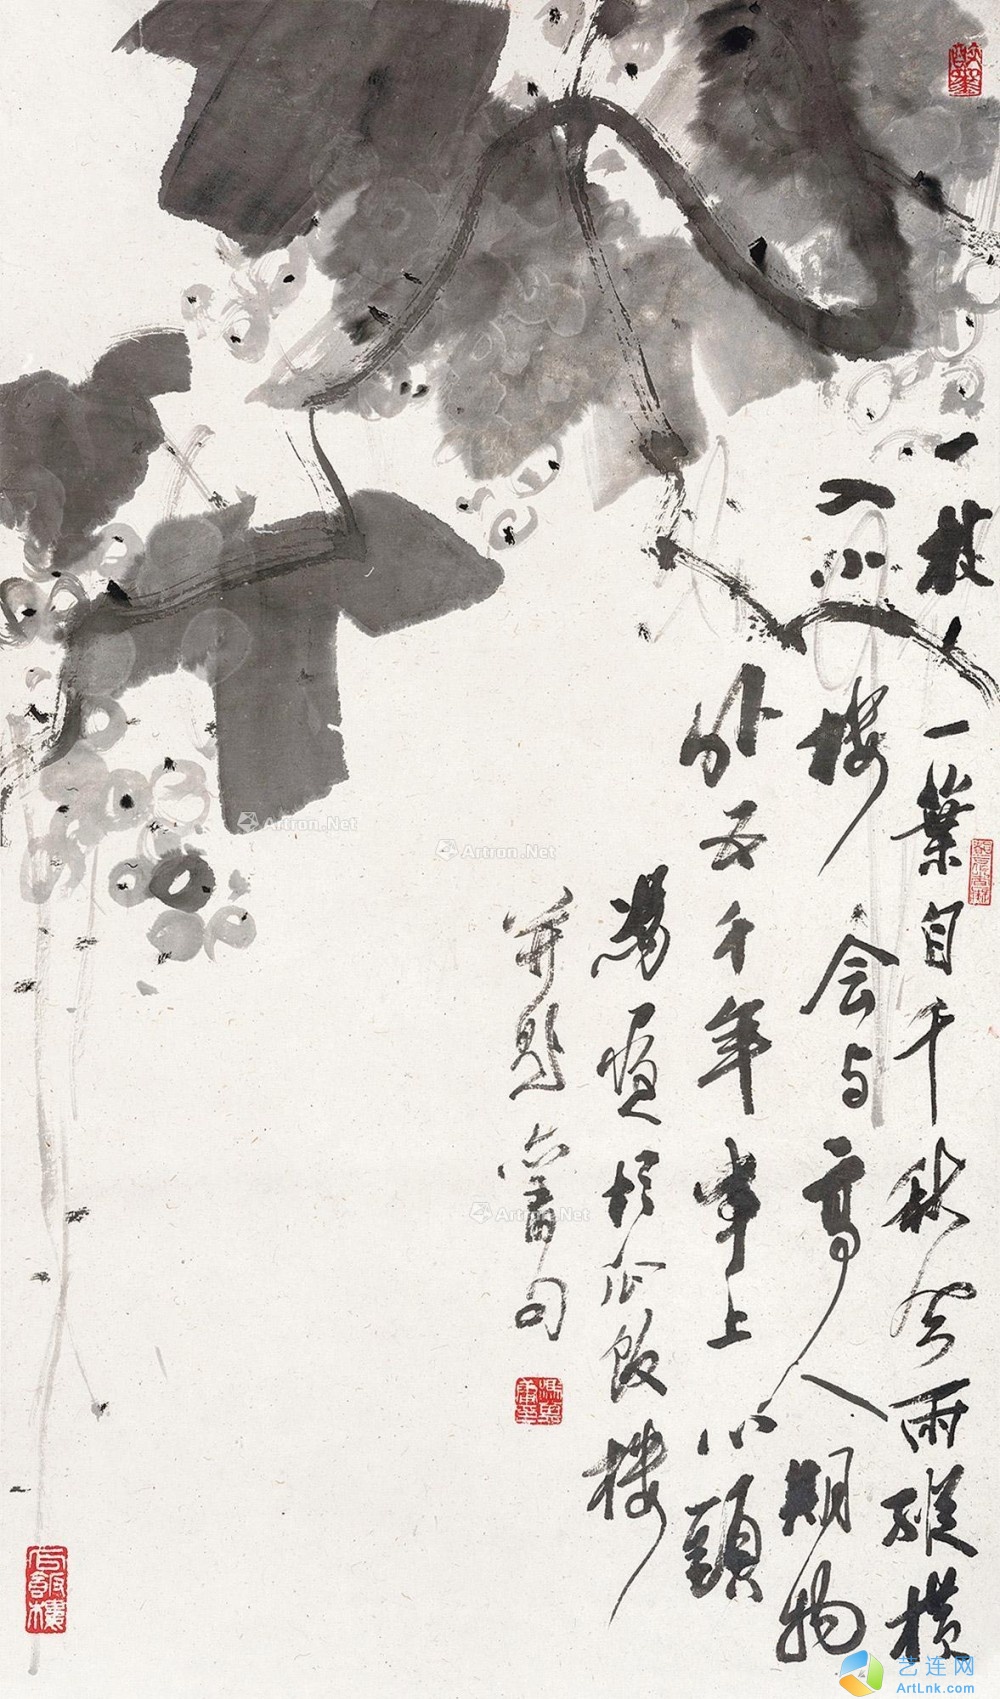 一枝一葉自千秋风雨縱橫
入小楼会与高人期物
外五千年事上心頭
馮於瓜飯楼
并題舊句
瓜飯樓
Artron.Net
Artron.Net
Artron.Net
艺连网
ArtLnk.com